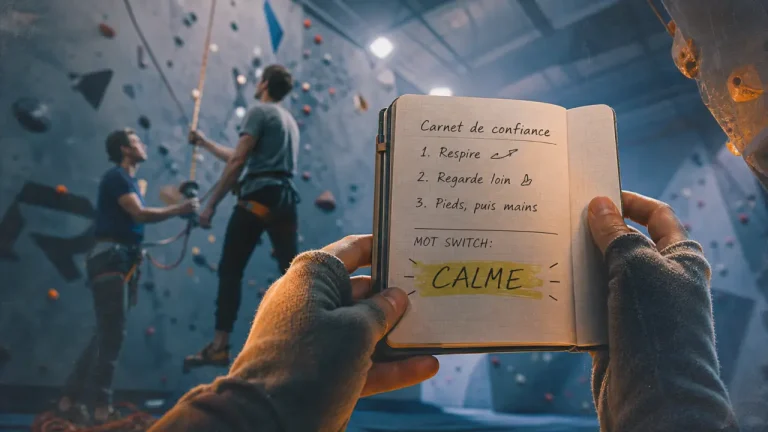 Carnet de confiance
1. Respire
2. Regarde loin
3. Pieds, puis mains
MOT SWITCH:
CALME